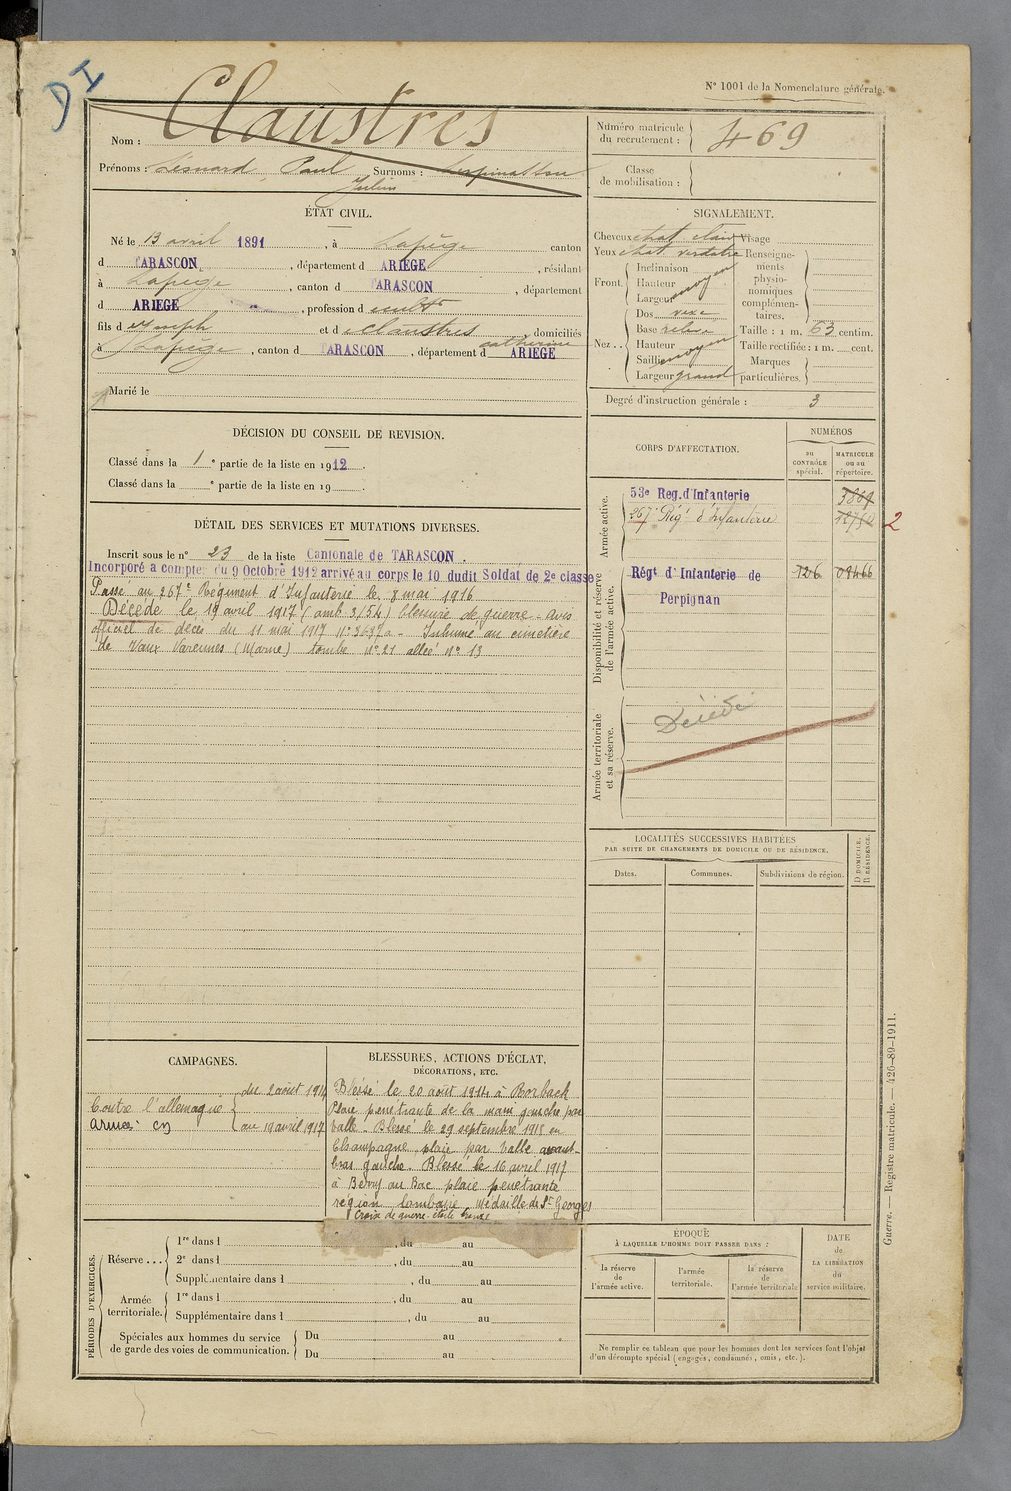 DI
N° 1001 de la Nomenclature générale.
Nom : Claustres
Prénoms : Léonard Paul Julien Surnoms :
Numéro matricule du recrutement : 469
Classe de mobilisation :
ÉTAT CIVIL.
Né le 13 avril 1891, à Lapège canton
d TARASCON, département d ARIEGE, résidant
à Lapège, canton d TARASCON, département
d ARIEGE, profession de cultr
fils d Joseph et d Claustres catherine, domiciliés
à Lapège, canton d TARASCON, département d ARIEGE
Marié le
SIGNALEMENT.
Cheveux chat clair Visage
Yeux chat verdatre Renseignements physionomiques complémentaires.
Front. Inclinaison
Hauteur moyen
Largeur
Nez.. Dos vexe
Base relevé Taille : 1 m. 63 centim.
Hauteur moyen Taille rectifiée : 1 m. cent.
Saillie Marques particulières.
Largeur grand
Degré d'instruction générale : 3
DÉCISION DU CONSEIL DE REVISION.
Classé dans la 1e partie de la liste en 1912.
Classé dans la e partie de la liste en 19
DÉTAIL DES SERVICES ET MUTATIONS DIVERSES.
Inscrit sous le n° 23 de la liste Cantonale de TARASCON.
Incorporé a compter du 9 Octobre 1912 arrivé au corps le 10 dudit Soldat de 2e classe
Passé au 267e Régiment d'Infanterie le 8 mai 1916
Décédé le 19 avril 1917 (amb 3/54) blessure de guerre - avis
officiel de décès du 11 mai 1917 N° 3637a - Inhumé au cimetière
de Vaux Varennes (Marne) tombe N° 21 allée N° 13
CORPS D'AFFECTATION.
NUMÉROS
au CONTRÔLE spécial.
MATRICULE ou au répertoire.
Armée active.
53e Reg. d'Infanterie 3869
267e Régt d'Infanterie 2
Disponibilité et réserve de l'armée active.
Régt d'Infanterie de Perpignan 726 08466
Armée territoriale et sa réserve.
Décédé
LOCALITÉS SUCCESSIVES HABITÉES
PAR SUITE DE CHANGEMENTS DE DOMICILE OU DE RÉSIDENCE.
Dates. Communes. Subdivisions de région. D DOMICILE. R RÉSIDENCE.
CAMPAGNES.
Contre l'allemagne
armées cn
du 2 août 1914
au 19 avril 1917
BLESSURES, ACTIONS D'ÉCLAT, DÉCORATIONS, ETC.
Blessé le 20 août 1914 à Rorback
Plaie pénétrante de la main gauche par
balle - Blessé le 29 septembre 1915 en
Champagne, plaie par balle avant-
bras gauche. Blessé le 16 avril 1917
à Berry au Bac plaie pénétrante
région lombaire Médaille de St Georges
Croix de guerre - étoile bronze
PÉRIODES D'EXERCICES.
Réserve...
1re dans l , du au
2e dans l , du au
Supplémentaire dans l , du au
Armée territoriale.
1re dans l , du au
Supplémentaire dans l , du au
Spéciales aux hommes du service de garde des voies de communication.
Du au
Du au
ÉPOQUE
À LAQUELLE L'HOMME DOIT PASSER DANS :
la réserve de l'armée active.
l'armée territoriale.
la réserve de l'armée territoriale
DATE de LA LIBÉRATION du service militaire.
Ne remplir ce tableau que pour les hommes dont les services font l'objet
d'un décompte spécial (engagés, condamnés, omis, etc.).
Guerre. — Registre matricule. — 426-89-1911.